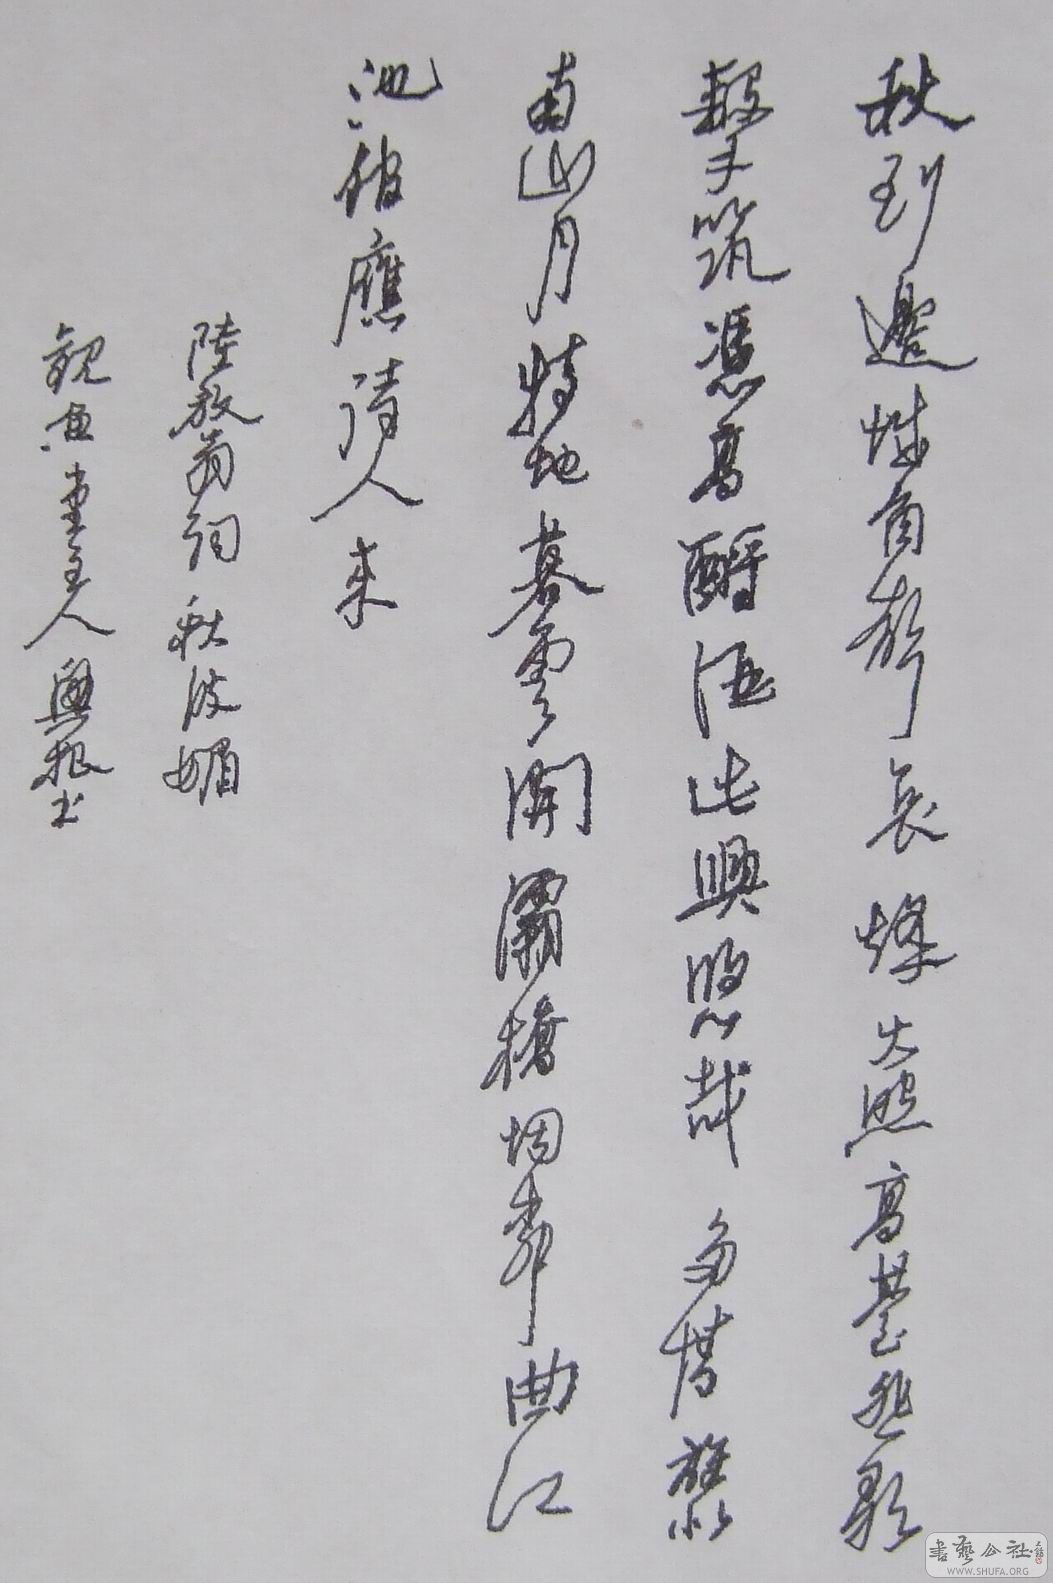 秋到邊城角聲哀烽火照高臺悲歌
擊筑憑高酹酒此興悠哉多情誰似
南山月特地暮雲開灞橋烟柳曲江
池館應待人来
陸放翁詞 秋波媚
觀魚堂主人興振书
書藝公社
WWW.SHUFA.ORG